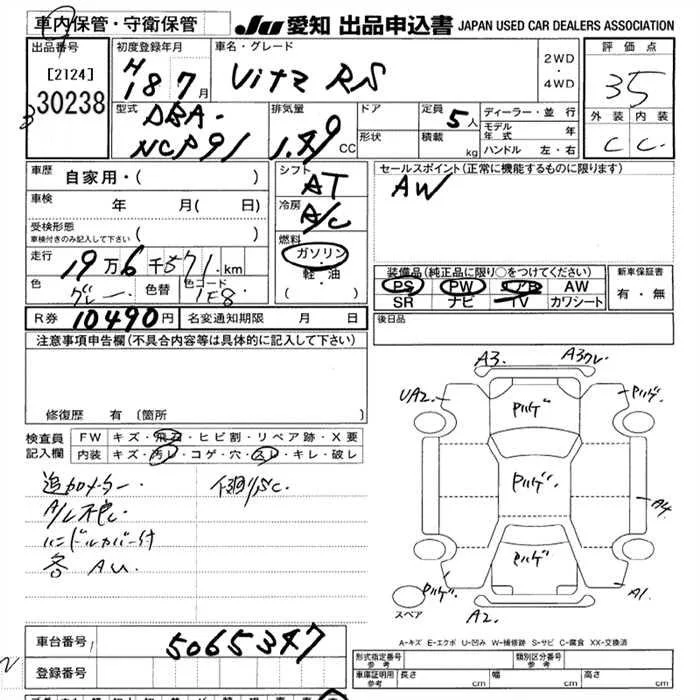 車内保管・守衛保管
JU 愛知 出品申込書 JAPAN USED CAR DEALERS ASSOCIATION
出品番号 初度登録年月 車名・グレード 評価点
[2124] H18 7月 Vitz RS 2WD・4WD 35
30238
型式 排気量 ドア 定員 5人 ディーラー・並行 外装 内装
DBA- 形状 積載 kg モデル年式 年 C C
NCP91 1.49 CC ハンドル 左・右
車歴 自家用・( ) シフト AT セールスポイント(正常に機能するものに限ります)
車検 年 月( 日) 冷房 A/C AW
受検形態 車検付きのみ記入して下さい ( ) 燃料 ガソリン・軽・油 ( )
走行 19万6千571km 装備品(純正品に限り○をつけてください) 新車保証書
色 グレー 色替 色コード 1E8 PS PW エアB AW 有・無
SR ナビ TV カワシート
R券 10490円 名変通知期限 月 日 後日品
注意事項申告欄(不具合内容等は具体的に記入して下さい)
修復歴 有 〔箇所 〕
検査員記入欄 FW キズ・飛石・ヒビ割・リペア跡・X要
内装 キズ・汚レ・コゲ・穴・スレ・キレ・破レ
追加メーター
A/L不良
ハンドルカバー付
各 AU
A3. A3ワレ
UA2. Pハゲ Pハゲ.
Pハゲ.
A4
Pハゲ
Pハゲ. A1.
スペア A2.
A-キズ E-エクボ U-凹み W-補修跡 S-サビ C-腐食 XX-交換済
車台番号 5065347
登録番号
形式指定番号 参考 類別区分番号 参考
車庫証明用 参考 長さ cm 幅 cm 高さ cm